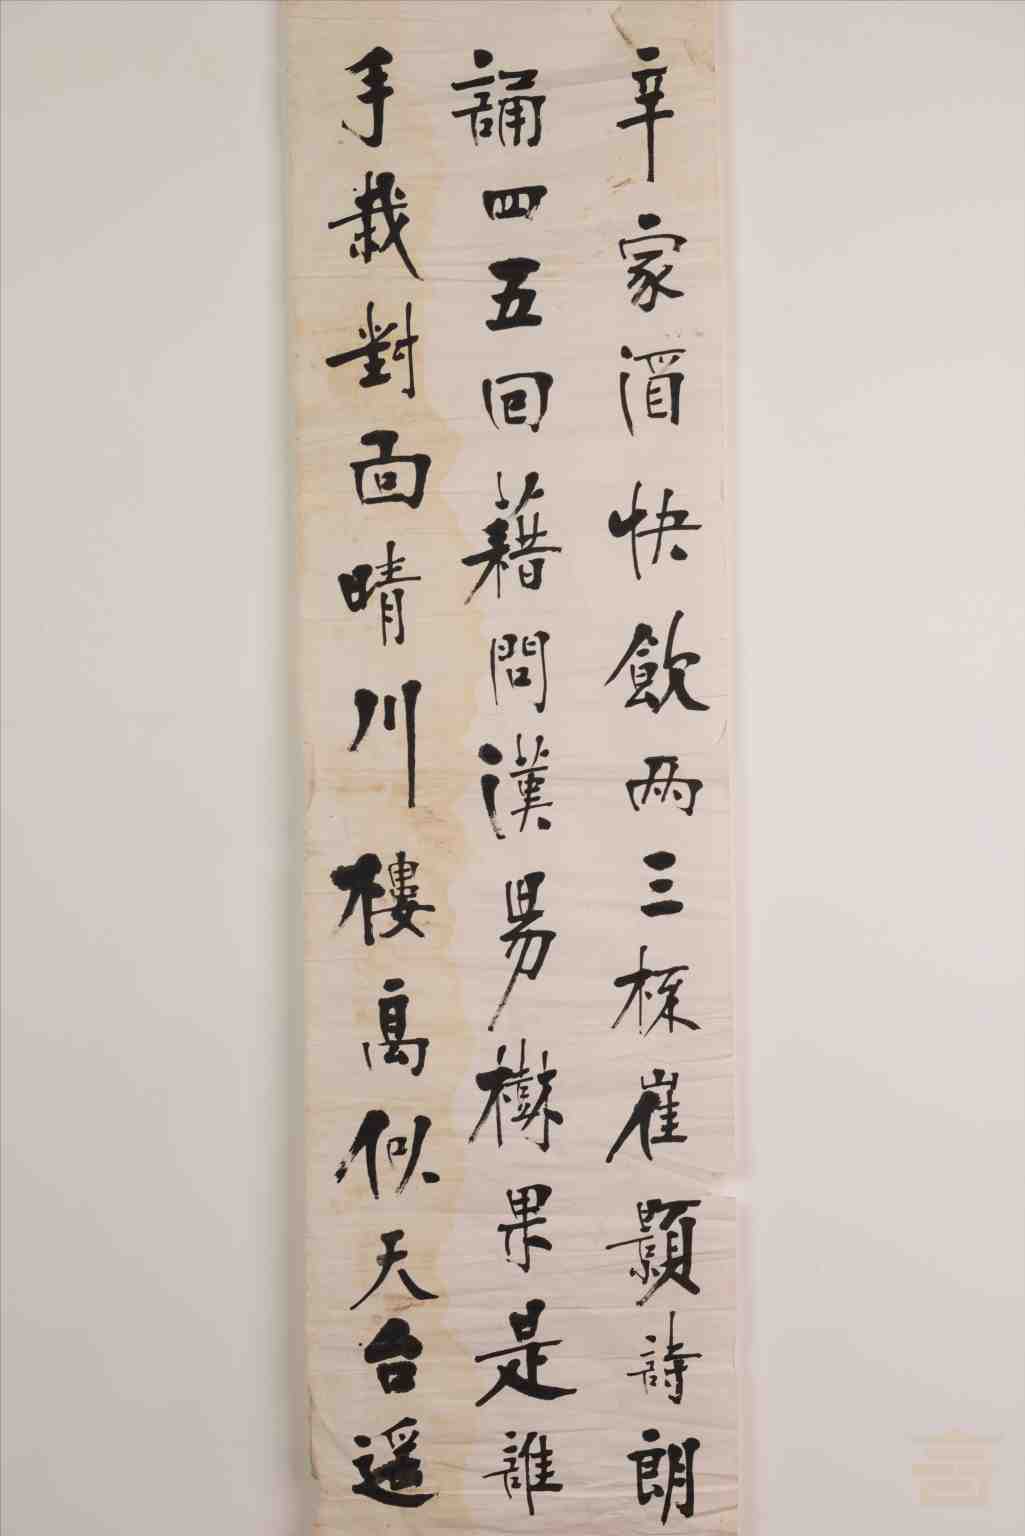 辛家酒快飲兩三杯崔顥詩朗
誦四五回藉問漢昜樹果是誰
手栽對面晴川樓高似天台遥